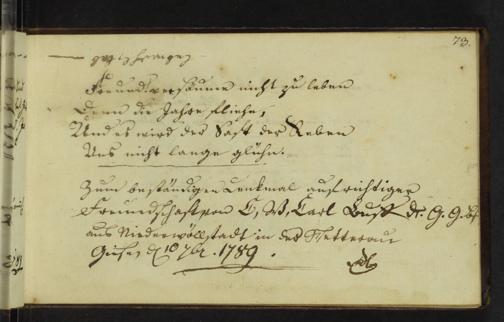 73.
Freund, versäume nicht zu leben
Denn die Jahre fliehn,
Und es wird der Saft der Reben
Uns nicht lange glühn.
Zum beständigen Denkmal aufrichtiger
Freundschaft von C. W. Carl Buff der G. G. Bfl
aus Niederwöllstadt in der Wetterau
Giesen d 10 7br. 1789.